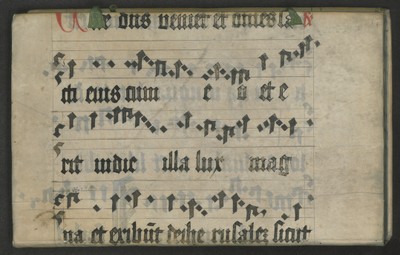 Ecce dñs veniet et om̄es sā
cti eius cum e o et e
rit in die illa lux mag
na et exibūt de ihe rusalez sicut